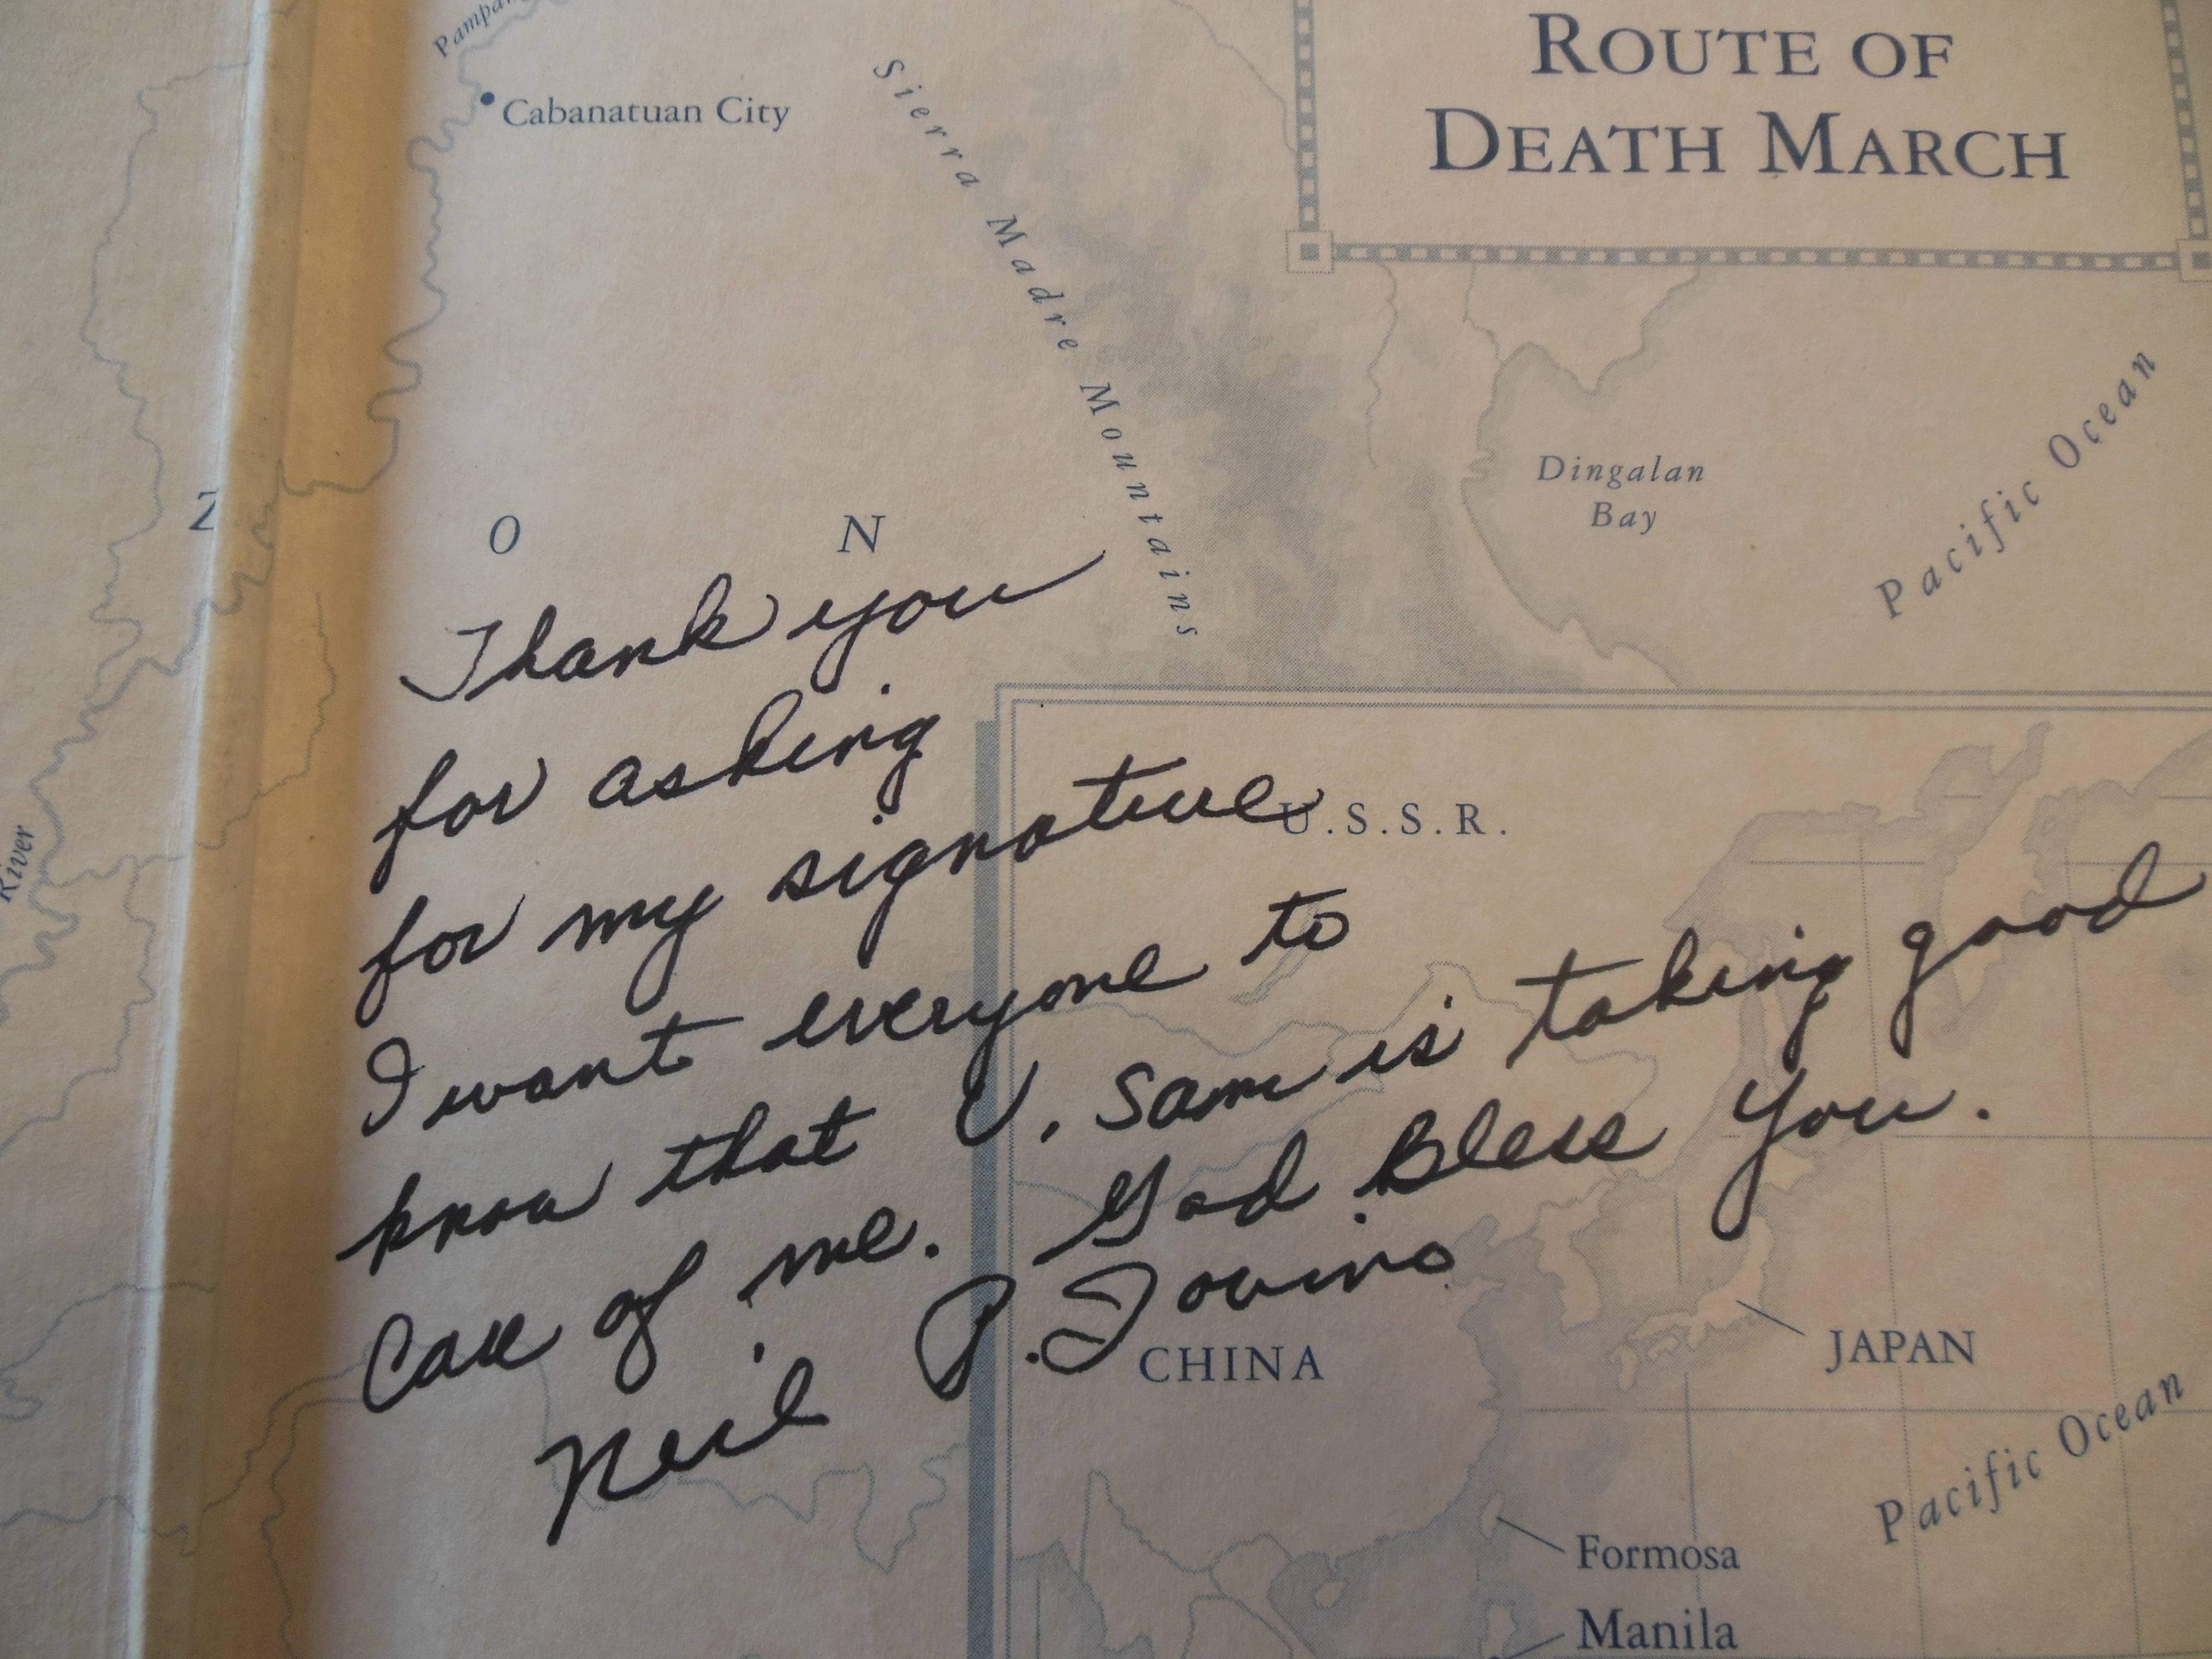 Cabanatuan City
Sierra Madre Mountains
ROUTE OF
DEATH MARCH
Dingalan
Bay
Pacific Ocean
Z O N
River
Thank you
for asking
for my signature
I want everyone to
know that U. Sam is taking good
Care of me. God Bless You.
Neil P. Iovino
U.S.S.R.
CHINA
JAPAN
Pacific Ocean
Formosa
Manila